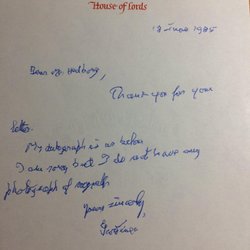 House of Lords
June 1985
Dear Mr.
Thank you for your
letter.
My autograph is as below
I am sorry but I do not have any
photograph of myself.
Yours sincerely,